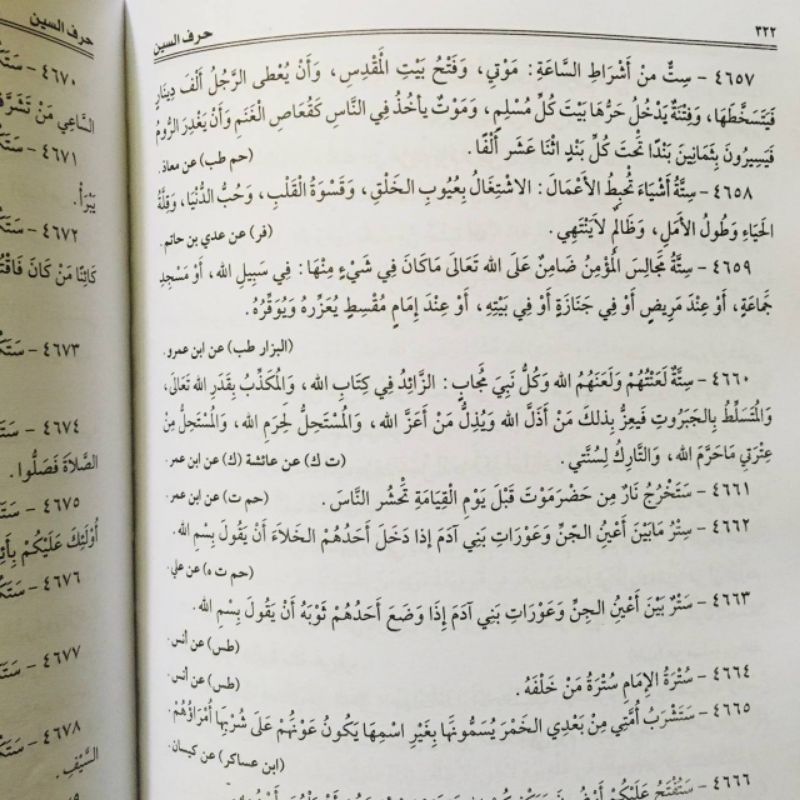 ٣٢٢
حرف السين
٤٦٥٧ – سِتٌّ مِنْ أَشْرَاطِ السَّاعَةِ: مَوْتِي، وَفَتْحُ بَيْتِ المَقْدِسِ، وَأَنْ يُعْطَى الرَّجُلُ أَلْفَ دِينَارٍ
فَيَتَسَخَّطَهَا، وَفِتْنَةٌ يَدْخُلُ حَرُّهَا بَيْتَ كُلِّ مُسْلِمٍ، وَمَوْتٌ يأخُذُ فِي النَّاسِ كَقُعَاصِ الْغَنَمِ وَأَنْ يَغْدِرَ الرُّومُ
فَيَسِيرُونَ بِثَمَانِينَ بَنْدًا تَحْتَ كُلِّ بَنْدٍ اثْنَا عَشَرَ أَلْفًا. (حم طب) عن معاذ.
٤٦٥٨ – سِتَّةُ أَشْيَاءَ تُحْبِطُ الأَعْمَالَ: الاشْتِغَالُ بِعُيُوبِ الخَلْقِ، وَقَسْوَةُ الْقَلْبِ، وَحُبُّ الدُّنْيَا، وَقِلَّةُ
الحَيَاءِ وَطُولُ الأَمَلِ، وَظَالِمٌ لاَيَنْتَهِي. (فر) عن عدي بن حاتم.
٤٦٥٩ – سِتَّةُ مَجَالِسَ الْمُؤْمِنُ ضَامِنٌ عَلَى الله تَعَالَى مَاكَانَ فِي شَيْءٍ مِنْهَا: فِي سَبِيلِ الله، أَوْ مَسْجِدِ
جَمَاعَةٍ، أَوْ عِنْدَ مَرِيضٍ أَوْ فِي جَنَازَةٍ أَوْ فِي بَيْتِهِ، أَوْ عِنْدَ إِمَامٍ مُقْسِطٍ يُعَزِّرُهُ وَيُوَقِّرُهُ.
(البزار طب) عن ابن عمرو.
٤٦٦٠ – سِتَّةٌ لَعَنْتُهُمْ وَلَعَنَهُمُ الله وَكُلُّ نَبِيٍّ مُجَابٍ: الزَّائِدُ فِي كِتَابِ الله، وَالمُكَذِّبُ بِقَدَرِ الله تَعَالَى،
وَالمُتَسَلِّطُ بِالجَبَرُوتِ فَيعِزُّ بِذلكَ مَنْ أَذَلَّ الله وَيُذِلُّ مَنْ أَعَزَّ الله، وَالمُسْتَحِلُّ لِحَرَمِ الله، وَالمُسْتَحِلُّ مِنْ
عِتْرَتِي مَاحَرَّمَ الله، وَالتَّارِكُ لِسُنَّتي. (ت ك) عن عائشة (ك) عن ابن عمر.
٤٦٦١ – سَتَخْرُجُ نَارٌ مِن حَضْرَمَوْتَ قَبْلَ يَوْمِ الْقِيَامَةِ تَحْشُر النَّاسَ. (حم ت) عن ابن عمر.
٤٦٦٢ – سِتْرُ مَابَيْنَ أَعْيُنِ الجِنِّ وَعَوْرَاتِ بَنِي آدَمَ إذا دَخَلَ أَحَدُهُمْ الخَلاَءَ أَنْ يَقُولَ بِسْمِ الله.
(حم ت ه) عن علي.
٤٦٦٣ – سَتْرُ بَيْنَ أَعْيُنِ الجِنِّ وَعَوْرَاتِ بَنِي آدَمَ إِذَا وَضَعَ أَحَدُهُمْ ثَوْبَهُ أَنْ يَقُولَ بِسْمِ الله.
(طس) عن أنس.
٤٦٦٤ – سُتْرَةُ الإِمَامِ سُتْرَةُ مَنْ خَلْفَهُ. (طس) عن أنس.
٤٦٦٥ – سَتَشْرَبُ أُمَّتِي مِنْ بَعْدِي الخَمْرَ يُسَمُّونَهَا بِغَيْرِ اسْمِهَا يَكُونُ عَوْنُهُمْ عَلَى شُرْبِهَا أُمَرَاؤُهُمْ.
(ابن عساكر) عن كيسان
٤٦٦٦ – سَتُفْتَحُ عَلَيْكُمْ
حرف السين
٤٦٧٠ –
السَّاعِي مَنْ تَشَرَّفَ
٤٦٧١ –
يَبْرَأْ.
٤٦٧٢ –
كَائِنًا مَنْ كَانَ فَاقْتُ
٤٦٧٣ –
٤٦٧٤ –
الصَّلاَةَ فَصَلُّوا.
٤٦٧٥ –
أُوْلَئِكَ عَلَيْكُمْ
٤٦٧٦ –
٤٦٧٧ –
٤٦٧٨ –
السَّيْفِ.